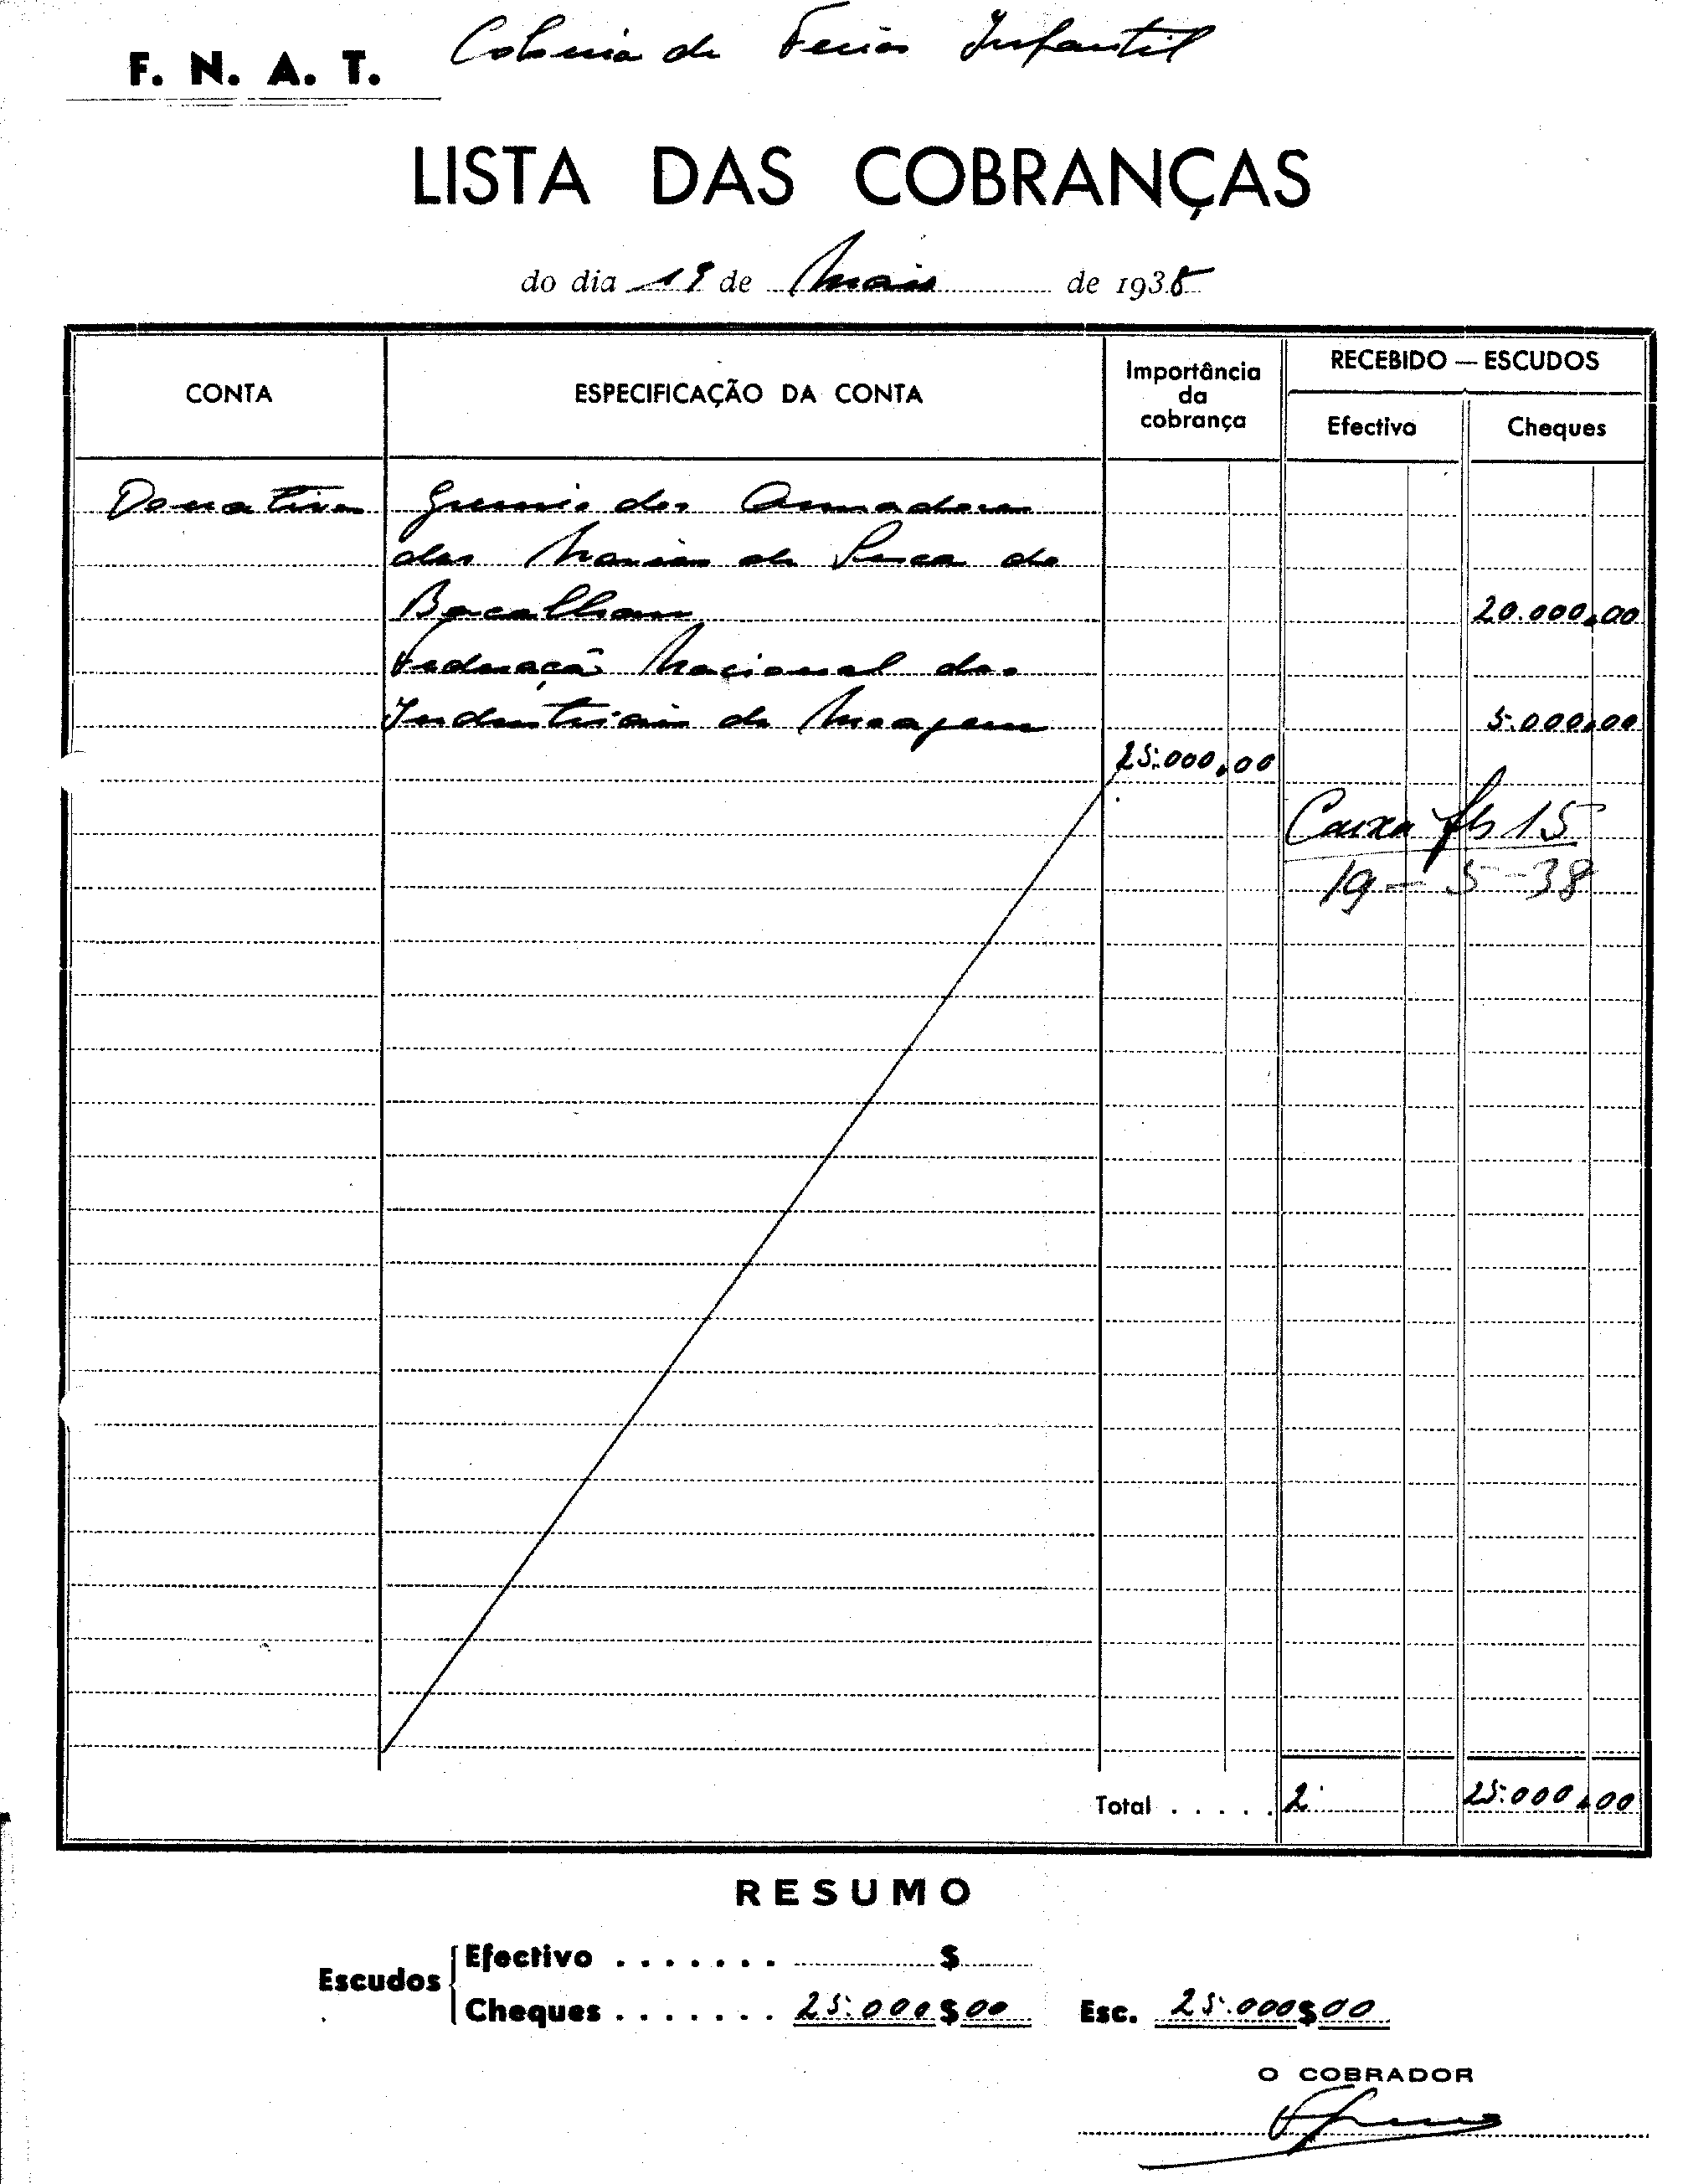 Colonia de Ferias Infantil
F. N. A. T.
LISTA DAS COBRANÇAS
do dia 19 de Maio de 1938
CONTA
ESPECIFICAÇÃO DA CONTA
Importância
da
cobrança
RECEBIDO — ESCUDOS
Efectivo
Cheques
Donativos Gremio dos Armadores
dos Navios de Pesca do
Bacalhau 20.000,00
Federação Nacional dos
Industriais de Moagem 5.000,00
25.000,00
Caixa fls 15
19-5-38
Total . . . . . 25.000,00
RESUMO
Escudos
Efectivo . . . . . . . $
Cheques . . . . . . . 25.000$00 Esc. 25.000$00
O COBRADOR